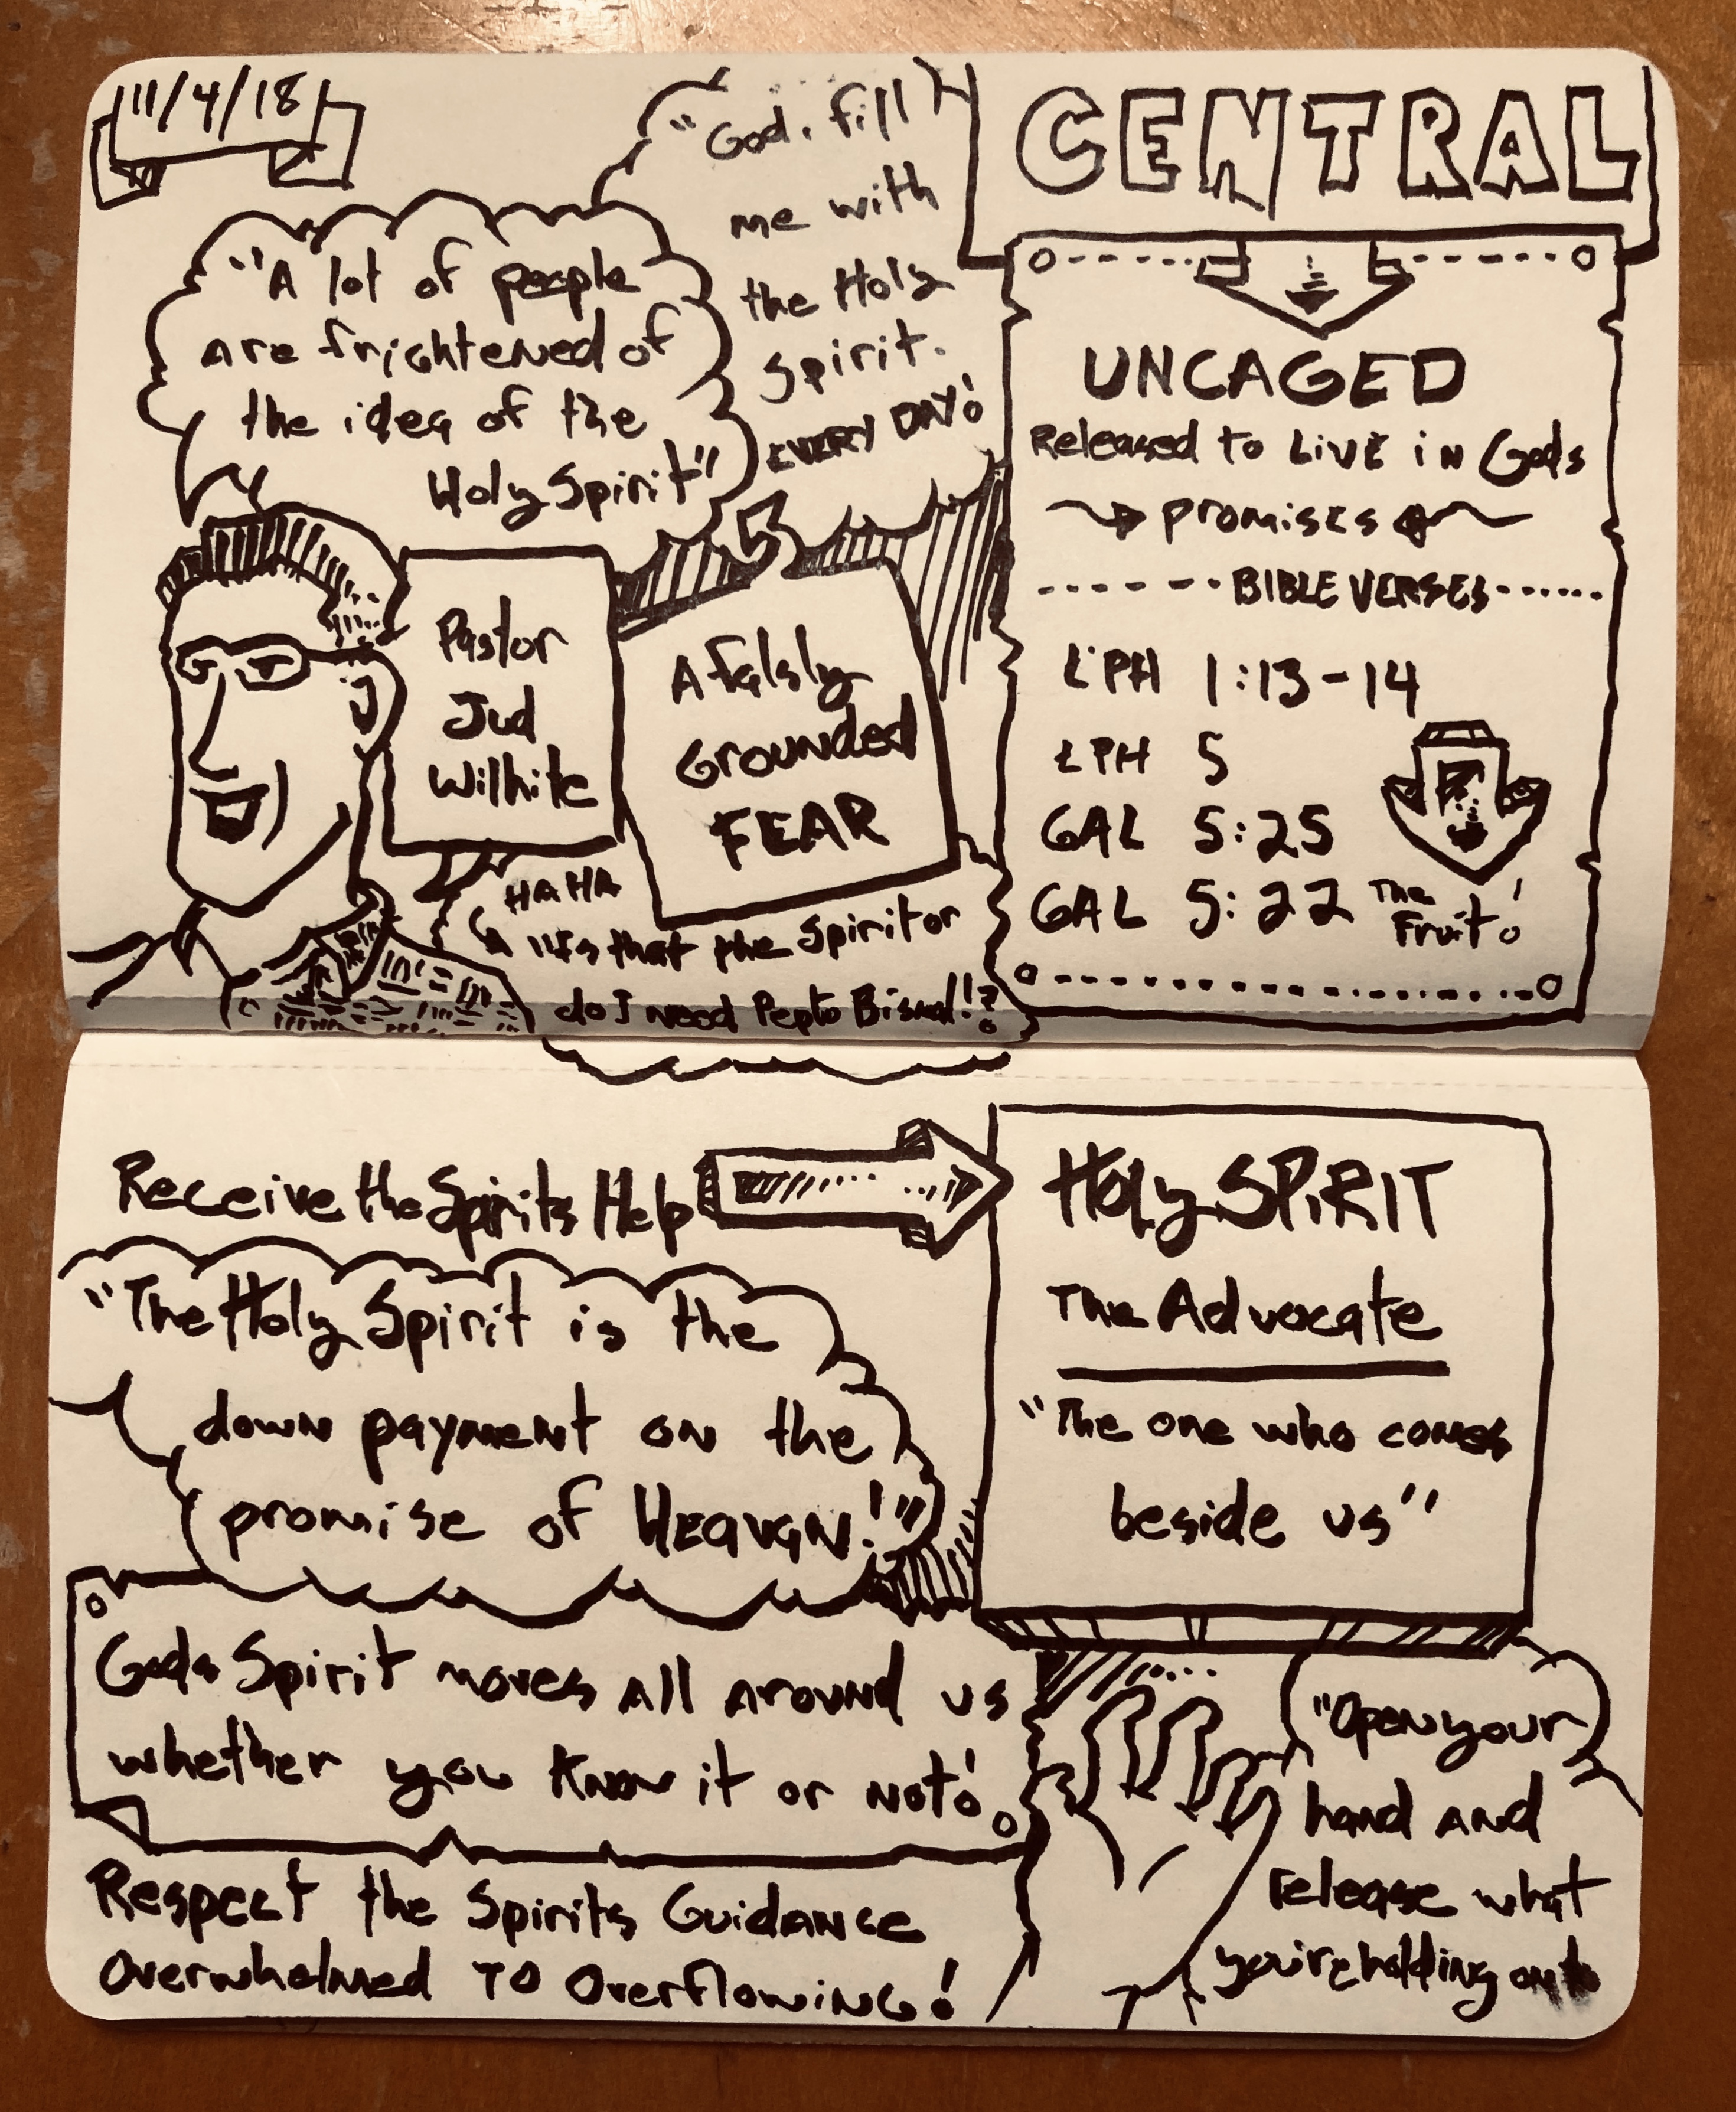 11/4/18
"God, fill
me with
the Holy
Spirit.
EVERY DAY!
"A lot of people
are frightened of
the idea of the
Holy Spirit"
Pastor
Jud
Wilhite
A falsly
Grounded
FEAR
HA HA
"Is that the Spirit or
do I need Pepto Bismal!?
CENTRAL
UNCAGED
Released to Live in Gods
promises
BIBLE VERSES
EPH 1:13-14
EPH 5
GAL 5:25
GAL 5:22 The
Fruit!
Receive the Spirits Help
Holy SPIRIT
The Advocate
"The one who comes
beside us"
"The Holy Spirit is the
down payment on the
promise of Heaven!"
Gods Spirit moves all around us
whether you know it or not!
"Open your
hand and
release what
you're holding onto
Respect the Spirits Guidance
Overwhelmed TO Overflowing!